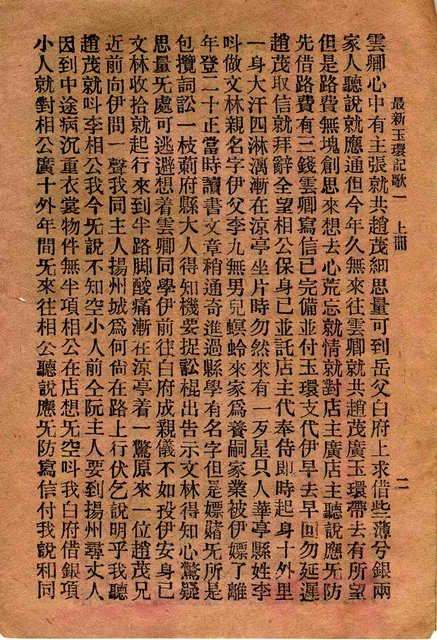 最新玉環記歌一 上冊 二
雲卿心中有主張就共趙茂細思量可到岳父白府上求借些薄兮銀兩
家人聽說就應通但今年久無來往雲卿就共趙茂廣玉環帶去有所望
但是路費無塊創思來想去心荒忘就情就對店主廣店主聽說應旡防
先借路費有三錢雲卿寫信已完備並付玉環支代伊早去早回勿延遲
趙茂取信就拜辭全望相公保身已並託店主代奉侍即時起身十外里
一身大汗四淋漓漸在涼亭坐片時勿然來有一歹星只人華亭縣姓李
呌做文林親名字伊父李九無男兒螟蛉來家爲養嗣家業被伊嫖了離
年登二十正當時讀書文章稍通奇進過縣學有名字但是嫖賭旡所是
包攬詞訟一枝葯府縣大人得知機要捉訟棍出告示文林得知心驚疑
思量旡處可逃避想着雲卿同學伊前往白府成親儀不如投伊安身已
文林收拾就起行來到半路脚酸痛漸在涼亭着一驚原來一位趙茂兄
近前向伊問一聲我同主人揚州城爲何尙在路上行伏乞說明乎我聽
趙茂就呌李相公我今旡說不知空小人前仝阮主人要到揚州尋丈人
因到中途病沉重衣裳物件無半項相公在店想旡空呌我白府借銀項
小人就對相公廣十外年間旡來往相公聽說應旡防寫信付我說和同